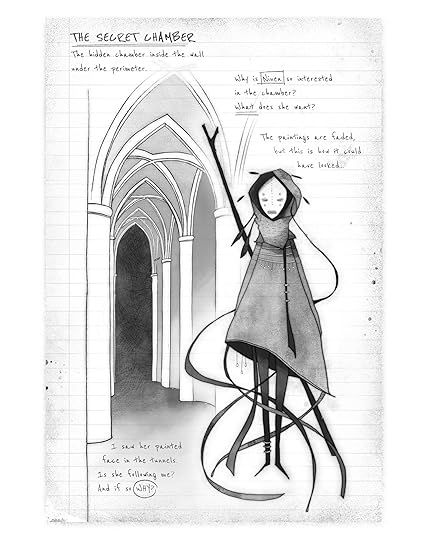 THE SECRET CHAMBER
The hidden chamber inside the wall
under the perimeter.
Why is Niven so interested
in the chamber?
What does she want?
The paintings are faded,
but this is how it could
have looked...
I saw her painted
face in the tunnels.
Is she following me?
And if so WHY?